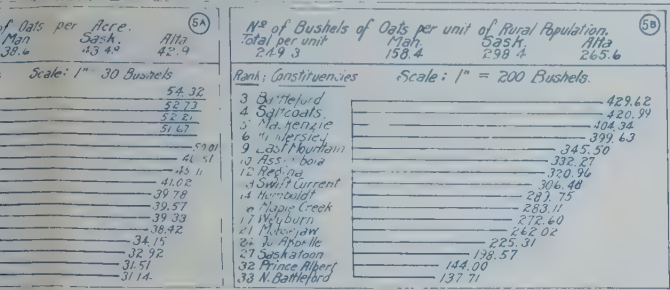 of Oats per Acre.
Man Sask. Alta
38.6 43.49 42.9
Scale: 1" 30 Bushels
54.32
52.73
52.21
51.67
39.78
39.57
39.33
38.42
34.15
32.92
31.51
31.14
5A
Nº of Bushels of Oats per unit of Rural Population.
5B
Total per unit Man. Sask. Alta
249.3 158.4 298.4 265.6
Rank; Constituencies Scale: 1" = 200 Bushels.
3 Battleford 429.62
4 Saltcoats 420.99
5 Mackenzie 404.34
6 Kindersley 399.63
9 Last Mountain 345.50
10 Assiniboia 332.27
12 Regina 320.96
Swift Current 306.48
14 Humboldt 283.75
Maple Creek 283.11
17 Weyburn 272.60
21 Moosejaw 262.02
Qu'Appelle 225.31
27 Saskatoon 198.57
32 Prince Albert 144.00
33 N. Battleford 137.71